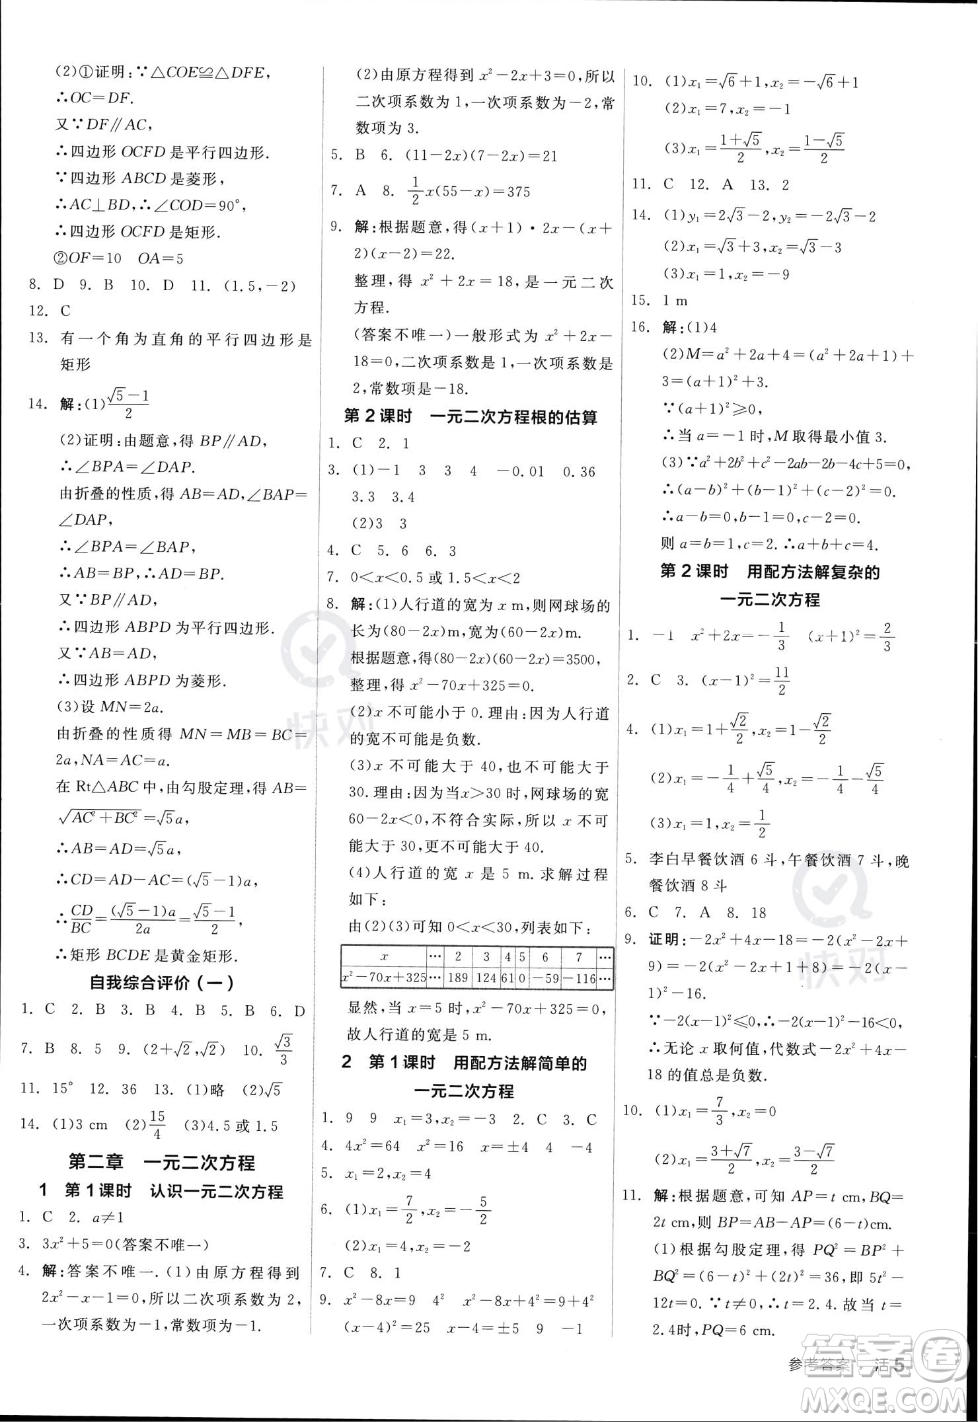 (2)①证明:∵△COE≌△DFE,
∴OC=DF.
又∵DF∥AC,
∴四边形 OCFD 是平行四边形.
∵四边形 ABCD 是菱形,
∴AC⊥BD,∴∠COD=90°,
∴四边形 OCFD 是矩形.
②OF=10 OA=5
8. D 9. B 10. D 11. (1.5,-2)
12. C
13. 有一个角为直角的平行四边形是
矩形
14. 解:(1)(√5-1)/2
(2)证明:由题意,得 BP∥AD,
∴∠BPA=∠DAP.
由折叠的性质,得 AB=AD,∠BAP=
∠DAP,
∴∠BPA=∠BAP,
∴AB=BP=AD,
∴四边形 ABPD 为平行四边形.
又∵AB=AD,
∴四边形 ABPD 为菱形.
(3)设 MN=2a.
由折叠的性质,得 MN=MB=BC=
2a,NA=AC=a.
在 Rt△ABC 中,由勾股定理,得 AB=
√(AC²+BC²)=√5a,
∴AB=AD=√5a,
∴CD=AD-AC=(√5-1)a,
∴CD/BC=(√5-1)a/2a=(√5-1)/2,
∴矩形 BCDE 是黄金矩形.
自我综合评价(一)
1. C 2. B 3. B 4. B 5. B 6. D
7. B 8. 5 9. (2+√2,√2) 10. √3/3
11. 15° 12. 36 13. (1)略 (2)√5
14. (1)3 cm (2)15/4 (3)4.5 或 1.5
第二章 一元二次方程
1 第 1 课时 认识一元二次方程
1. C 2. a≠1
3. 3x²+5=0(答案不唯一)
4. 解:答案不唯一.(1)由原方程得到
2x²-x-1=0,所以二次项系数为 2,
一次项系数为-1,常数项为-1.
(2)由原方程得到 x²-2x+3=0,所以
二次项系数为 1,一次项系数为-2,常
数项为 3.
5. B 6. (11-2x)(7-2x)=21
7. A 8. 1/2x(55-x)=375
9. 解:根据题意,得(x+1)·2x-(x+
2)(x-2)=22.
整理,得 x²+2x=18,是一元二次
方程.
(答案不唯一)一般形式为 x²+2x-
18=0,二次项系数是 1,一次项系数是
2,常数项是-18.
第 2 课时 一元二次方程根的估算
1. C 2. 1
3. (1)-1 3 3 4 -0.01 0.36
3.3 3.4
(2)3 3
4. C 5. 6 6. 3
7. 0<x<0.5 或 1.5<x<2
8. 解:(1)人行道的宽为 x m,则网球场的
长为(80-2x)m,宽为(60-2x)m.
根据题意,得(80-2x)(60-2x)=3500,
整理,得 x²-70x+325=0.
(2)x 不可能小于 0.理由:因为人行道
的宽不可能是负数.
(3)x 不可能大于 40,也不可能大于
30.理由:当 x>30 时,网球场的宽
60-2x<0,不符合实际,所以 x 不可能
大于 30,更不可能大于 40.
(4)人行道的宽 x 是 5 m.求解过程
如下:
由(2)(3)可知 0<x<30,列表如下:
x … 2 4 5 6 7 …
x²-70x+325 … 189 124 61 0 -59 -116 …
显然,当 x=5 时,x²-70x+325=0,
故人行道的宽是 5 m.
2 第 1 课时 用配方法解简单的
一元二次方程
1. 9 9 x₁=3,x₂=-3 2. C 3. C
4. 4x²=64 x²=16 x=±4 4 -4
5. x₁=2,x₂=-2
6. (1)x₁=7/2,x₂=-5/2
(2)x₁=4,x₂=-2
7. C 8. 1
9. x²-8x=9 4² x²-8x+4²=9+4²
(x-4)²=25 x-4=±5 9 -1
10. (1)x₁=√6+1,x₂=-√6+1
(2)x₁=x₂=-1
(3)x₁=(1+√5)/2,x₂=(1-√5)/2
11. C 12. A 13. 2
14. (1)y₁=2√3-2,y₂=-2√3-2
(2)x₁=√3+3,x₂=√3-3
(3)x₁=1,x₂=-9
15. 1 m
16. 解:(1)4
(2)M=a²+2a+4=(a²+2a+1)+
3=(a+1)²+3.
∵(a+1)²≥0,
∴当 a=-1 时,M 取得最小值 3.
(3)∵a²+2b²+c²-2ab-2b-4c+5=0,
∴(a-b)²+(b-1)²+(c-2)²=0,
∴a-b=0,b-1=0,c-2=0.
则 a=b=1,c=2.∴a+b+c=4.
第 2 课时 用配方法解复杂的
一元二次方程
1. -1 x²+2x=-1/3 (x+1)²=2/3
2. C 3. (x-1)²=11/2
4. (1)x₁=1+√2/2,x₂=1-√2/2
(2)x₁=-1/4+√5/4,x₂=-1/4-√5/4
(3)x₁=1,x₂=1/2
5. 李白早餐饮酒 6 斗,午餐饮酒 7 斗,晚
餐饮酒 8 斗
6. C 7. A 8. 18
9. 证明:-2x²+4x-18=-2(x²-2x+
9)=-2(x²-2x+1+8)=-2(x-1)²-
16.
∵-2(x-1)²≤0,∴-2(x-1)²-16<0,
∴无论 x 取何值,代数式-2x²+4x-
18 的值总是负数.
10. (1)x₁=7/3,x₂=0
(2)x₁=(3+√7)/2,x₂=(3-√7)/2
11. 解:根据题意,可知 AP=t cm,BQ=
2t cm,则 BP=AB-AP=(6-t)cm.
根据勾股定理,得 PQ²=BP²+
BQ²=(6-t)²+(2t)²=36,即 5t²-
12t=0.∵t≠0,∴t=2.4.故当 t=
2.4时,PQ=6 cm.
参考答案 活 5
快对
快对
答案圈
MXQE.COM